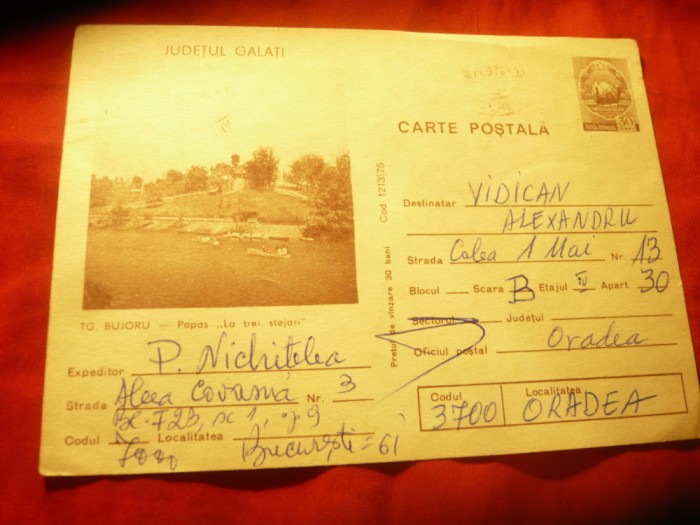 JUDEȚUL GALAȚI
CARTE POȘTALĂ
Cod 1213|75
Prețul de vînzare 30 bani
Destinatar VIDICAN
ALEXANDRU
Strada Calea 1 Mai Nr. 13
Blocul Scara B Etajul IV Apart. 30
Sectorul Județul
Oficiul poștal Oradea
Codul Localitatea
3700 ORADEA
TG. BUJORU — Popas „La trei stejari"
Expeditor P. Nichitelea
Strada Aleea Covasna Nr. 3
BL. F2B, sc 1,
Codul Localitatea
București - 61